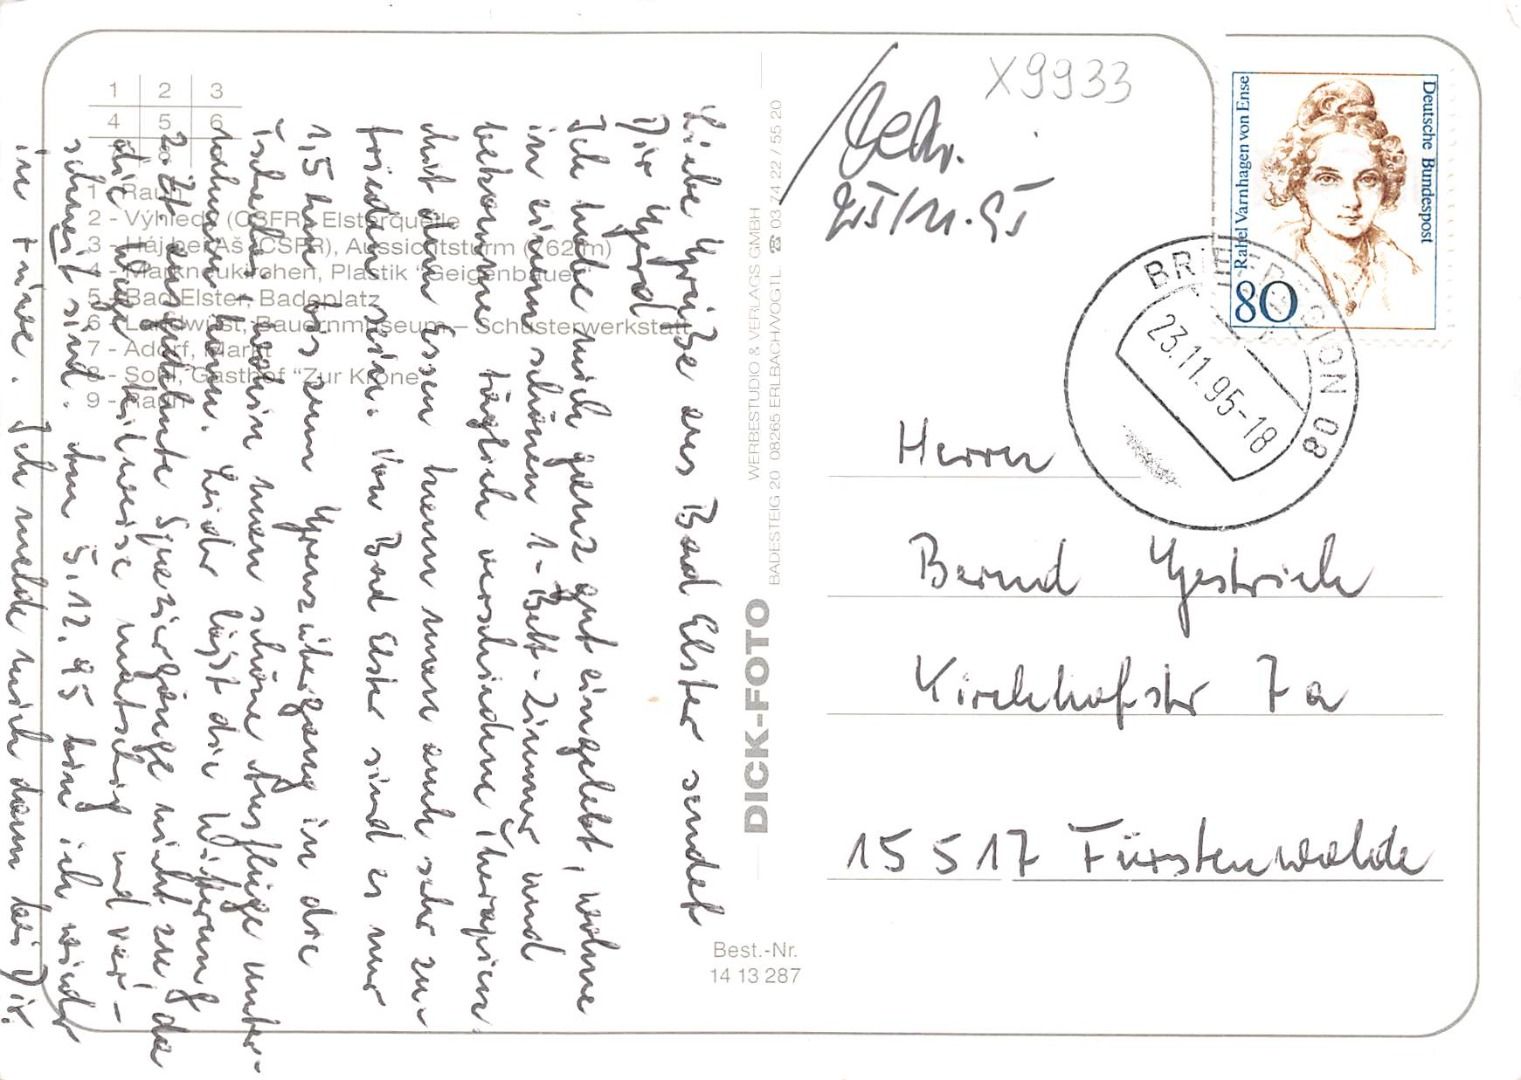 1 2 3
4 5 6
1 - Raun
2 - Výhledy (CSFR), Elsterquelle
3 - Háj bei Aš (CSFR), Aussichtsturm (762 m)
4 - Markneukirchen, Plastik "Geigenbauer"
5 - Bad Elster, Badeplatz
6 - Landwüst, Bauernmuseum – Schusterwerkstatt
7 - Adorf, Markt
8 - Sohl, Gasthof "Zur Krone"
9 - Raun
Liebe Grüße aus Bad Elster sendet
Dir Gerd
Ich habe mich ganz gut eingelebt, wohne
in einem schönen 1-Bett-Zimmer und
bekomme täglich verschiedene Therapien.
Mit dem Essen kann man auch sehr zu-
frieden sein. Von Bad Elster sind es nur
1,5 km bis zum Grenzübergang in die
wohin man schöne Ausflüge unter-
nehmen kann. Leider lässt die Witterung
ausgedehnte Spaziergänge nicht zu, da
die Wege teilweise matschig und ver-
schneit sind. Am 5.12.95 bin ich wieder
in Füwa. Ich melde mich dann bei Dir.
DICK-FOTO
WERBESTUDIO & VERLAGS GMBH
BADESTEIG 20 08265 ERLBACH/VOGTL. ☎ 03 74 22 / 55 20
Best.-Nr.
14 13 287
X9933
25/11.95
Deutsche Bundespost
Rahel Varnhagen von Ense
80
BRIEFREGION 08
23.11.95-18
Herrn
Bernd Gestrich
Kirchhofstr 7a
15517 Fürstenwalde